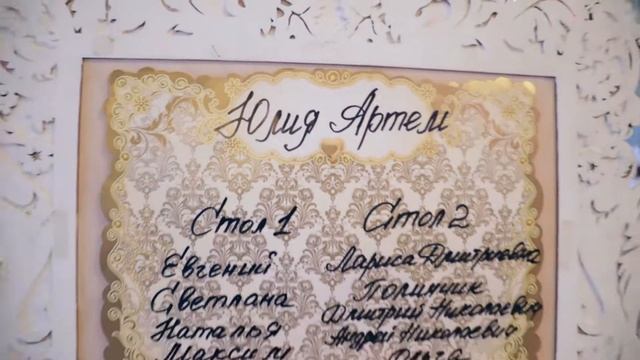 Юлия Артем
Стол 1
Евгений
Светлана
Наталья
Максим
Стол 2
Лариса Дмитриевна
Дмитрий Николаевич
Андрей Николаевич